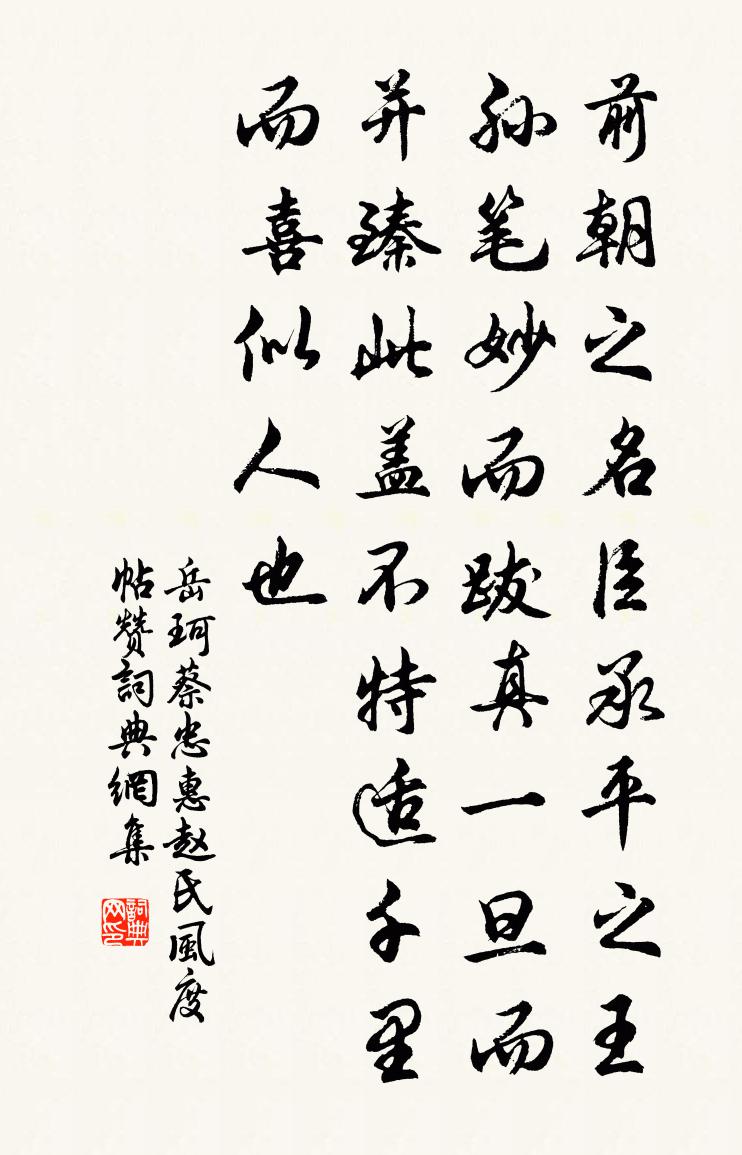 前朝之名臣承平之王
孙笔妙而跋真一旦而
并臻此盖不特适千里
而喜似人也
岳珂蔡忠惠赵氏風度
帖赞詞典網集
詞典网印